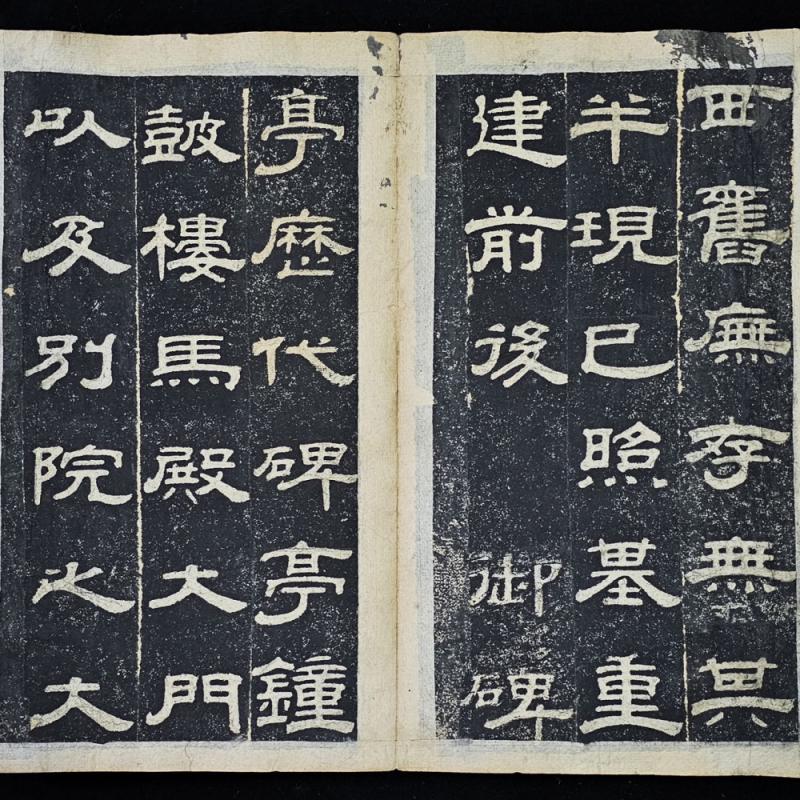 西舊廡存無其
半現已照基重
建前後 御碑
亭歷代碑亭鐘
皷樓馬殿大門
以及別院之大